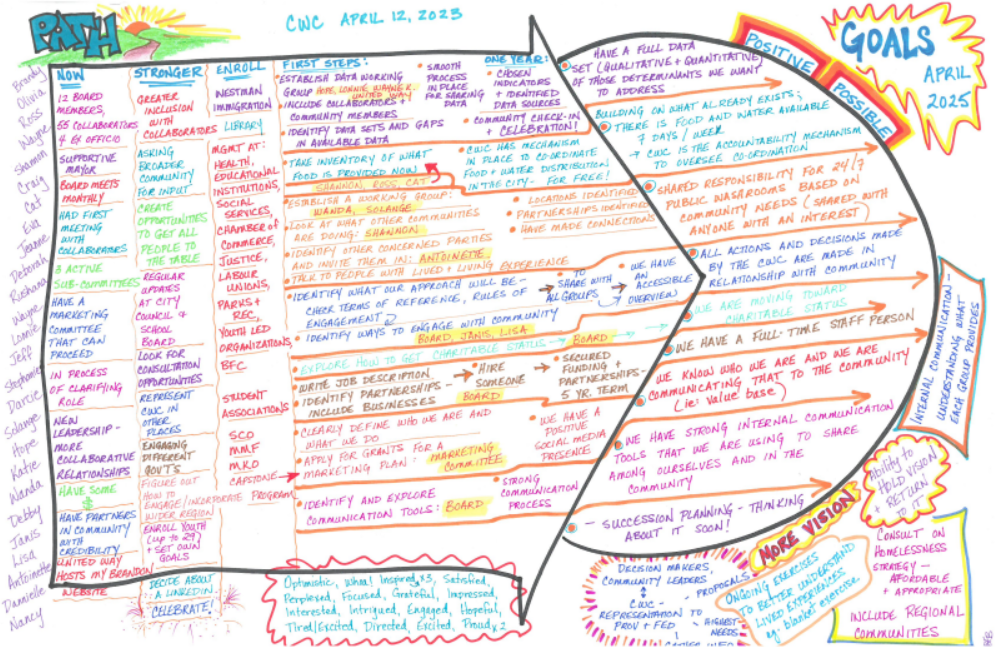 PATH
CWC APRIL 12, 2023
Brandy
Olivia
Ross
Wayne
Shannon
Craig
Cat
Eva
Jeanne
Deborah
Rushana
Wayne
Lonnie
Jeff
Stephanie
Darcie
Solange
Hope
Katie
Wanda
Debby
Janis
Lisa
Antoinette
Dannielle
Nancy
NOW
12 BOARD
MEMBERS,
55 COLLABORATORS
4 EX OFFICIO
SUPPORTIVE
MAYOR
BOARD MEETS
MONTHLY
HAD FIRST
MEETING
WITH
COLLABORATORS
3 ACTIVE
SUB-COMMITTEES
HAVE A
MARKETING
COMMITTEE
THAT CAN
PROCEED
IN PROCESS
OF CLARIFYING
ROLE
NEW
LEADERSHIP -
MORE
COLLABORATIVE
RELATIONSHIPS
HAVE SOME
$
HAVE PARTNERS
IN COMMUNITY
WITH
CREDIBILITY
UNITED WAY
HOSTS MY BRANDON
WEBSITE
STRONGER
GREATER
INCLUSION
WITH
COLLABORATORS
ASKING
BROADER
COMMUNITY
FOR INPUT
CREATE
OPPORTUNITIES
TO GET ALL
PEOPLE TO
THE TABLE
REGULAR
UPDATES
AT CITY
COUNCIL &
SCHOOL
BOARD
LOOK FOR
CONSULTATION
OPPORTUNITIES
REPRESENT
CWC IN
OTHER
PLACES
ENGAGING
DIFFERENT
GOV'TS
FIGURE OUT
HOW TO
ENGAGE/INCORPORATE
WIDER REGION
ENROLL YOUTH
(up to 29)
+ SET OWN
GOALS
DECIDE ABOUT
A LINKEDIN
CELEBRATE!
ENROLL
WESTMAN
IMMIGRATION
LIBRARY
MGMT AT:
HEALTH,
EDUCATIONAL
INSTITUTIONS,
SOCIAL
SERVICES,
CHAMBER of
COMMERCE,
JUSTICE,
LABOUR
UNIONS,
PARKS +
REC,
YOUTH LED
ORGANIZATIONS,
BFC
STUDENT
ASSOCIATIONS
SCO
MMF
MKO
CAPSTONE
PROGRAM
FIRST STEPS:
ESTABLISH DATA WORKING
GROUP HOPE, LONNIE, WAYNE K.
UNITED WAY
INCLUDE COLLABORATORS +
COMMUNITY MEMBERS
IDENTIFY DATA SETS AND GAPS
IN AVAILABLE DATA
SMOOTH
PROCESS
IN PLACE
FOR SHARING
DATA
ONE YEAR:
CHOSEN
INDICATORS
+ IDENTIFIED
DATA SOURCES
COMMUNITY CHECK-IN
+ CELEBRATION!
TAKE INVENTORY OF WHAT
FOOD IS PROVIDED NOW
SHANNON, ROSS, CAT
CWC HAS MECHANISM
IN PLACE TO CO-ORDINATE
FOOD + WATER DISTRIBUTION
IN THE CITY - FOR FREE!
ESTABLISH A WORKING GROUP:
WANDA, SOLANGE
LOOK AT WHAT OTHER COMMUNITIES
ARE DOING: SHANNON
IDENTIFY OTHER CONCERNED PARTIES
AND INVITE THEM IN: ANTOINETTE
TALK TO PEOPLE WITH LIVED + LIVING EXPERIENCE
LOCATIONS IDENTIFIED
PARTNERSHIPS IDENTIFIED
HAVE MADE CONNECTIONS
IDENTIFY WHAT OUR APPROACH WILL BE -
CHECK TERMS OF REFERENCE, RULES OF
ENGAGEMENT
IDENTIFY WAYS TO ENGAGE WITH COMMUNITY
BOARD, JANIS, LISA
TO
SHARE WITH
ALL GROUPS
WE HAVE
AN
ACCESSIBLE
OVERVIEW
EXPLORE HOW TO GET CHARITABLE STATUS - BOARD
WRITE JOB DESCRIPTION
IDENTIFY PARTNERSHIPS -
INCLUDE BUSINESSES
HIRE
SOMEONE
BOARD
SECURED
FUNDING
PARTNERSHIPS -
5 YR. TERM
CLEARLY DEFINE WHO WE ARE AND
WHAT WE DO
APPLY FOR GRANTS FOR A
MARKETING PLAN: MARKETING
COMMITTEE
WE HAVE A
POSITIVE
SOCIAL MEDIA
PRESENCE
IDENTIFY AND EXPLORE
COMMUNICATION TOOLS: BOARD
STRONG
COMMUNICATION
PROCESS
POSITIVE
POSSIBLE
GOALS
APRIL
2025
HAVE A FULL DATA
SET (QUALITATIVE + QUANTITATIVE)
OF THOSE DETERMINANTS WE WANT
TO ADDRESS
BUILDING ON WHAT ALREADY EXISTS;
THERE IS FOOD AND WATER AVAILABLE
7 DAYS / WEEK
CWC IS THE ACCOUNTABILITY MECHANISM
TO OVERSEE CO-ORDINATION
SHARED RESPONSIBILITY FOR 24/7
PUBLIC WASAROOMS BASED ON
COMMUNITY NEEDS (SHARED WITH
ANYONE WITH AN INTEREST)
ALL ACTIONS AND DECISIONS MADE
BY THE CWC ARE MADE IN
RELATIONSHIP WITH COMMUNITY
WE ARE MOVING TOWARD
CHARITABLE STATUS
WE HAVE A FULL-TIME STAFF PERSON
WE KNOW WHO WE ARE AND WE ARE
COMMUNICATING THAT TO THE COMMUNITY
(ie: value base)
WE HAVE STRONG INTERNAL COMMUNICATION
TOOLS THAT WE ARE USING TO SHARE
AMONG OURSELVES AND IN THE
COMMUNITY
- SUCCESSION PLANNING - THINKING
ABOUT IT SOON!
INTERNAL COMMUNICATION -
UNDERSTANDING WHAT
EACH GROUP PROVIDES
Ability to
HOLD VISION
+ RETURN
TO IT
MORE VISION
CONSULT ON
HOMELESSNESS
STRATEGY -
AFFORDABLE
+ APPROPRIATE
INCLUDE REGIONAL
COMMUNITIES
ONGOING EXERCISES
TO BETTER UNDERSTAND
LIVED EXPERIENCES
eg. blanket exercise
DECISION MAKERS,
COMMUNITY LEADERS
- PROPOSALS
CWC -
REPRESENTATION TO
PROV + FED
- HIGHEST
NEEDS
Optimistic, Whoa! Inspired x3, Satisfied,
Perplexed, Focused, Grateful, Impressed
Interested, Intrigued, Engaged, Hopeful,
Tired/Excited, Directed, Excited, Proud x2